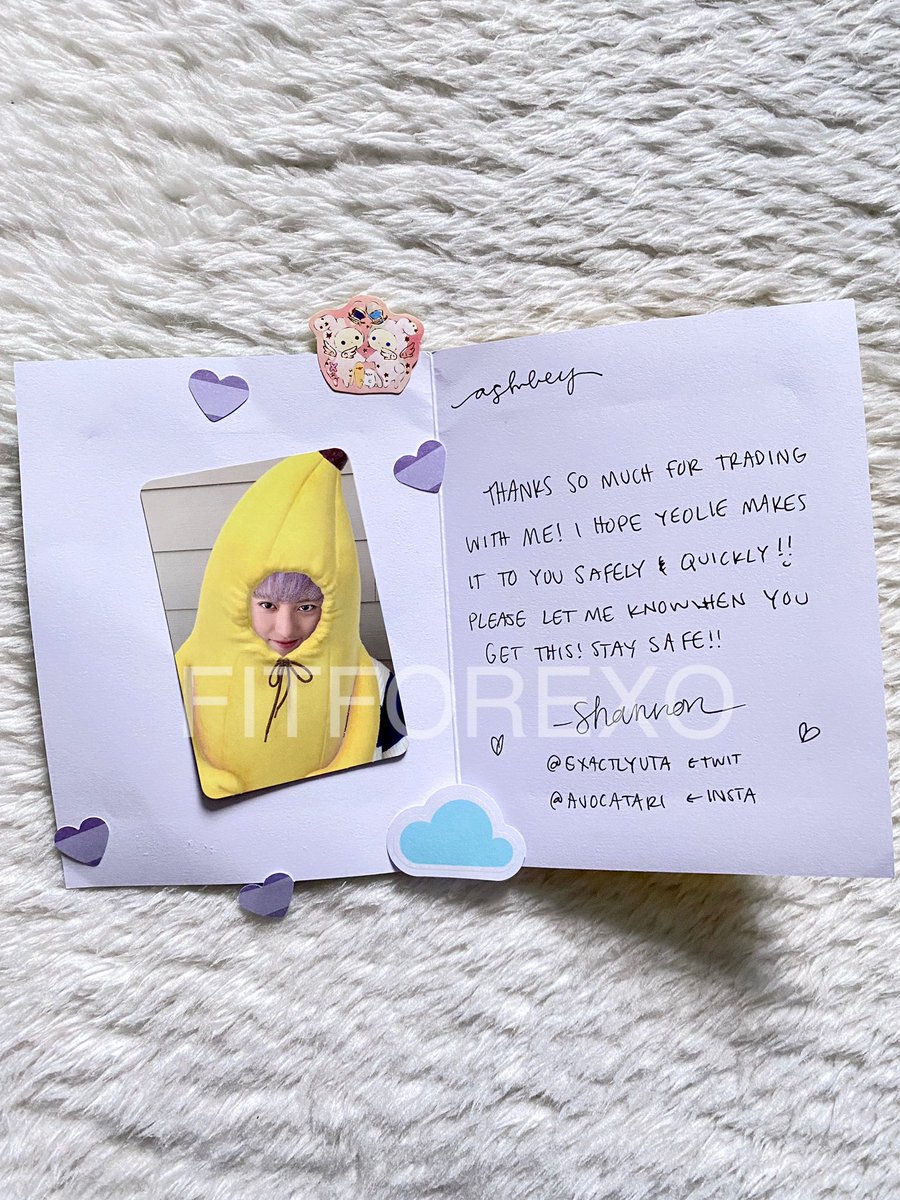 ashley
THANKS SO MUCH FOR TRADING
WITH ME! I HOPE YEOLIE MAKES
IT TO YOU SAFELY & QUICKLY!!
PLEASE LET ME KNOW WHEN YOU
GET THIS! STAY SAFE!!
FITFOREXO
-Shannon
@EXACTLYUTA ← TWIT
@AVOCATARI ← INSTA